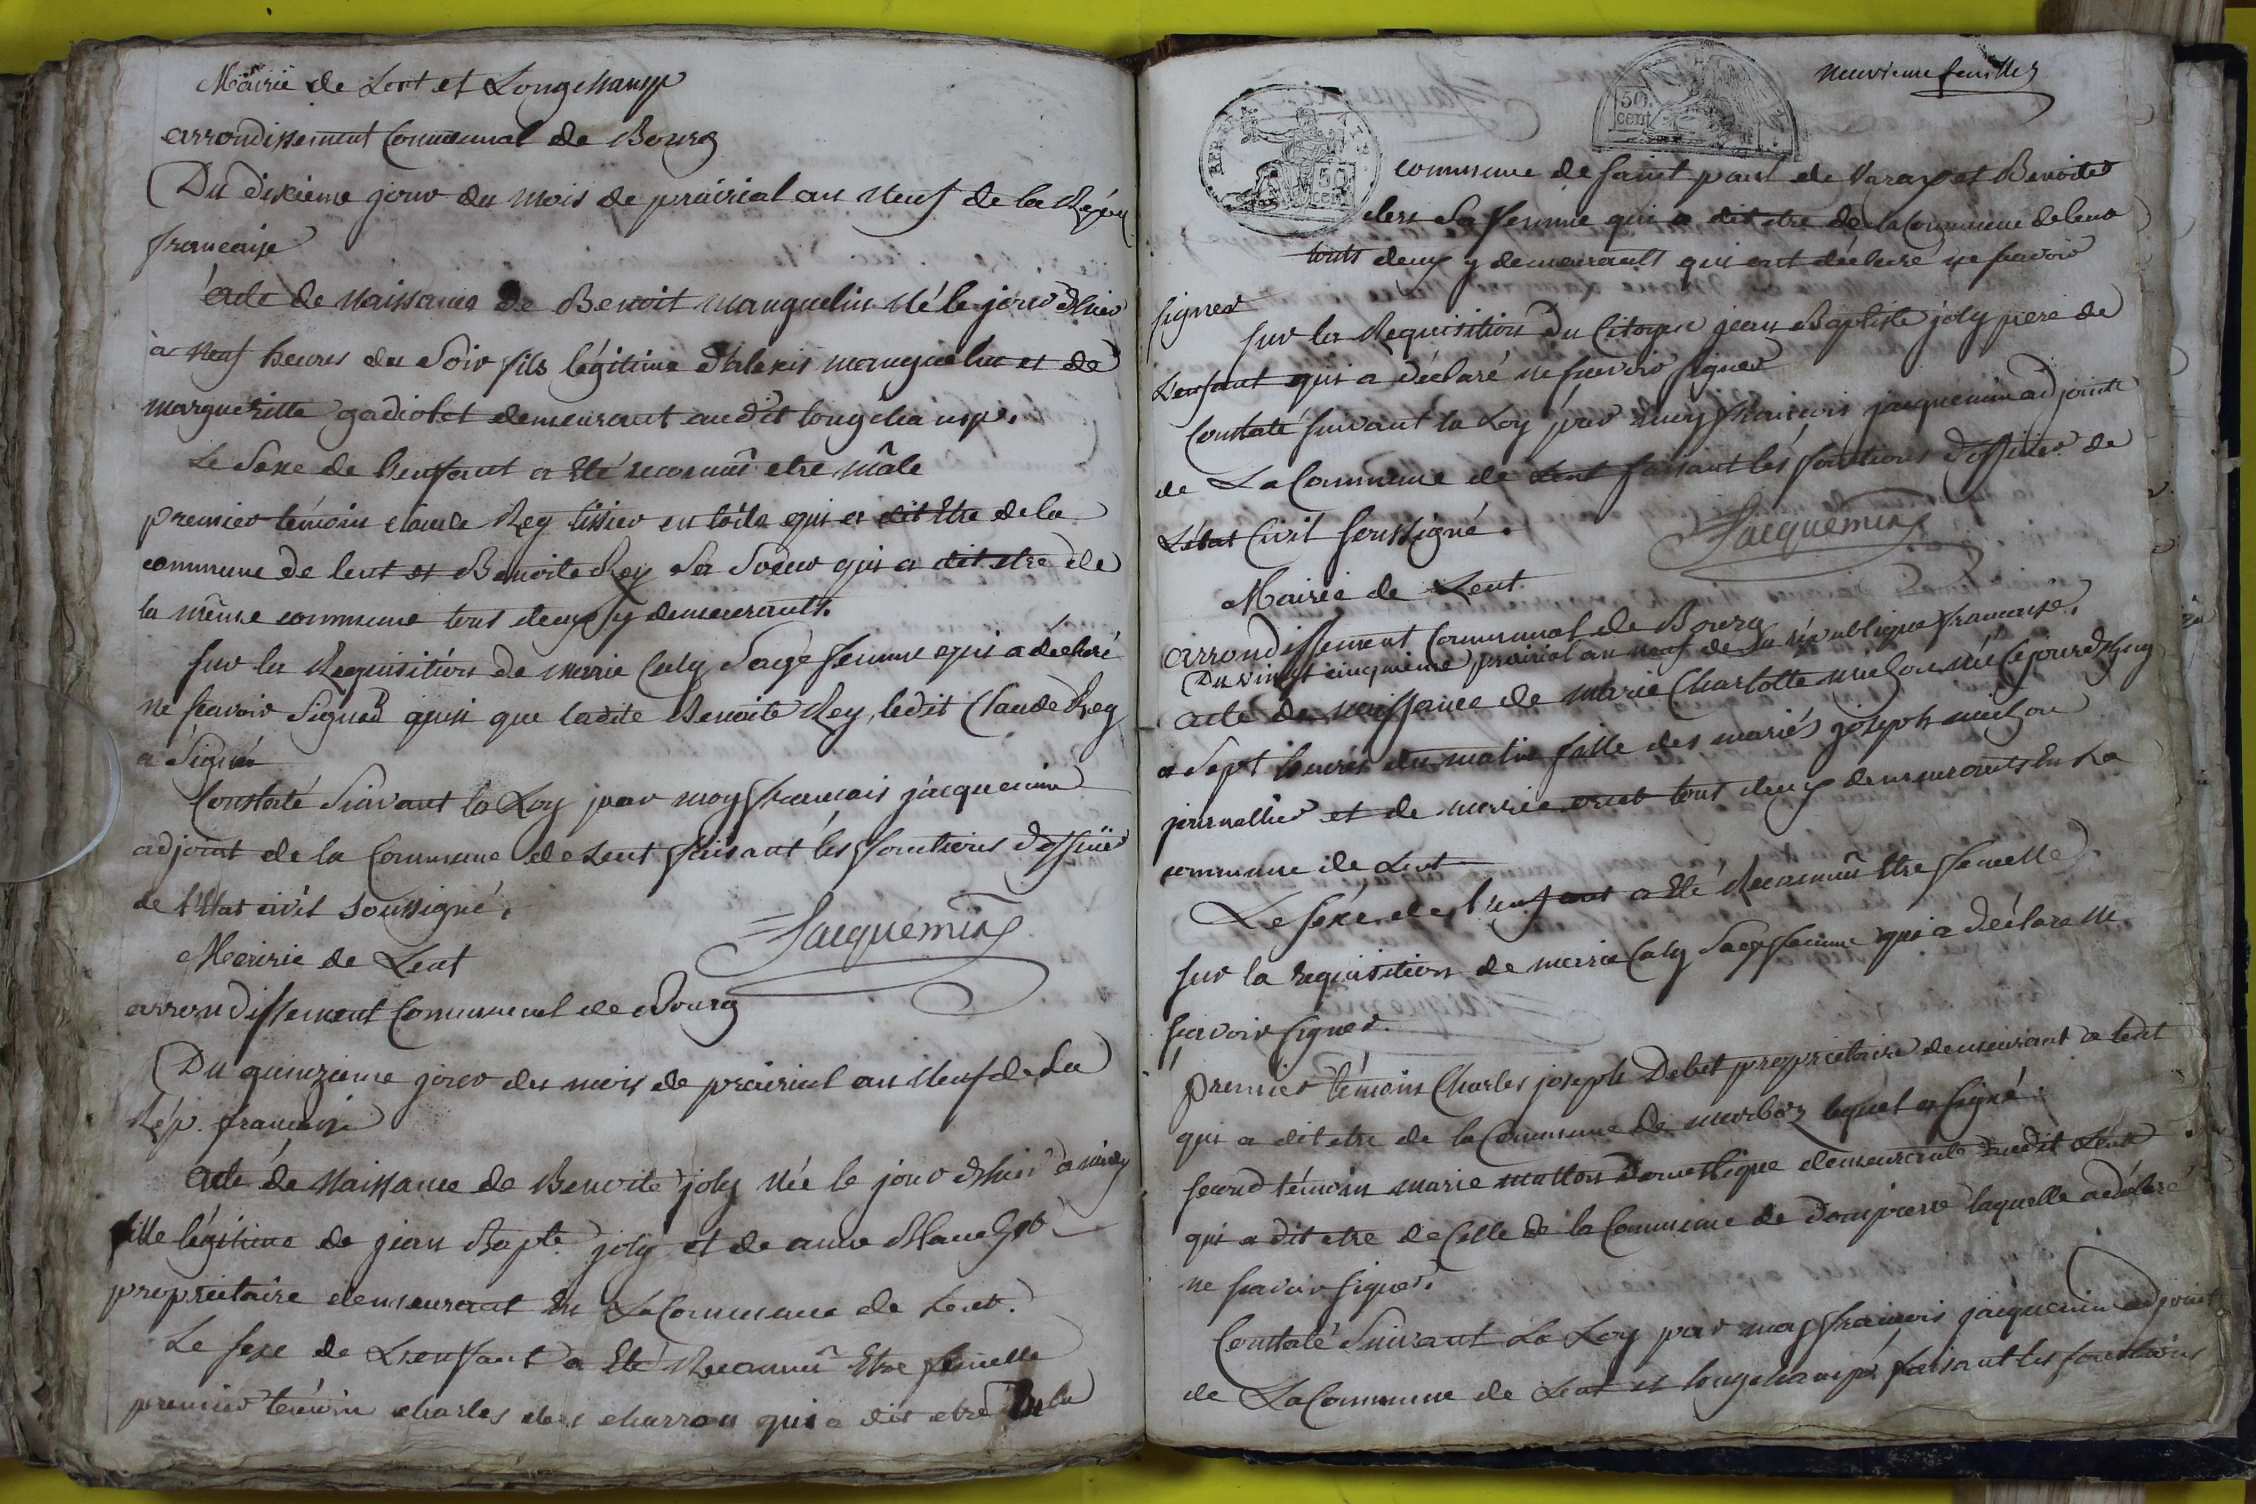 Mairie de Lent et Longchamp
arrondissement Communal de Bourg
Du dixieme jour du mois de prairial an neuf de la Répu
française
acte de naissance de Benoit manguelin né le jour d'hier
à neuf heures du soir fils légitime d'alexis manguelin et de
margueritte gadiolet demeurant audit longchamp.
Le sexe de l'enfant a été reconnû etre mâle
premier témoin claude Rey tissier en toile qui a dit Etre de la
commune de lent et Benoite Rey sa soeur qui a dit etre de
la même commune tous deux y demeurants.
sur la Requisition de marie Caly sage femme qui a déclaré
ne scavoir signer ainsi que ladite Benoite Rey, ledit Claude Rey
a signé
Constaté suivant la Loy par moy francois jacquemin
adjoint de la Commune de Lent faisant les fonctions d'officier
de l'Etat civil soussigné.
Jacquemin
Mairie de Lent
arrondissement Communal de Bourg
Du quinzieme jour du mois de prairial an neuf de La
Rép. francaise
acte de naissance de Benoite joly née le jour d'hier a midy
fille légitime de jean Bapte joly et de anne
propriétaire demeurant en La Commune de Lent.
Le sexe de L'enfant a Eté Reconnû Etre femelle
premier témoin charles clerc charron qui a dit etre de la
neuvieme feuillet
50 cent
50 cent
commune de saint paul de Varax et Benoite
clerc sa femme qui a dit etre de la Commune de lent
touts deux y demeurants qui ont déclaré ne scavoir
signer
sur la Requisition du Citoyen jean Baptiste joly pere de
L'enfant qui a déclaré ne scavoir signer
Constaté suivant la Loy par moy francois jacquemin adjoint
de La Commune de Lent faisant les fonctions d'officier de
L'état Civil soussigné.
Jacquemin
Mairie de Lent
arrondissement Communal de Bourg
Du vingt cinquieme prairial an neuf de la république francaise.
acte de naissance de marie Charlotte née Cejourd'huy
a sept heures du matin fille des mariés joseph
journallier et de marie tous deux demeurants En La
commune de Lent
Le sexe de l'enfant a Eté Reconnû Etre femelle
sur la requisition de marie Caly sage femme qui a déclaré ne
scavoir signer.
premier témoin Charles joseph Debet propriétaire demeurant a lent
qui a dit etre de la Commune de marboz lequel a signé.
second témoin marie mutton domestique demeurante audit Lent
qui a dit etre de Celle de la Commune de dompierre laquelle a déclaré
ne scavoir signer.
Constaté suivant La Loy par moy francois jacquemin adjoint
de La Commune de Lent et longchamp, faisant les fonctions